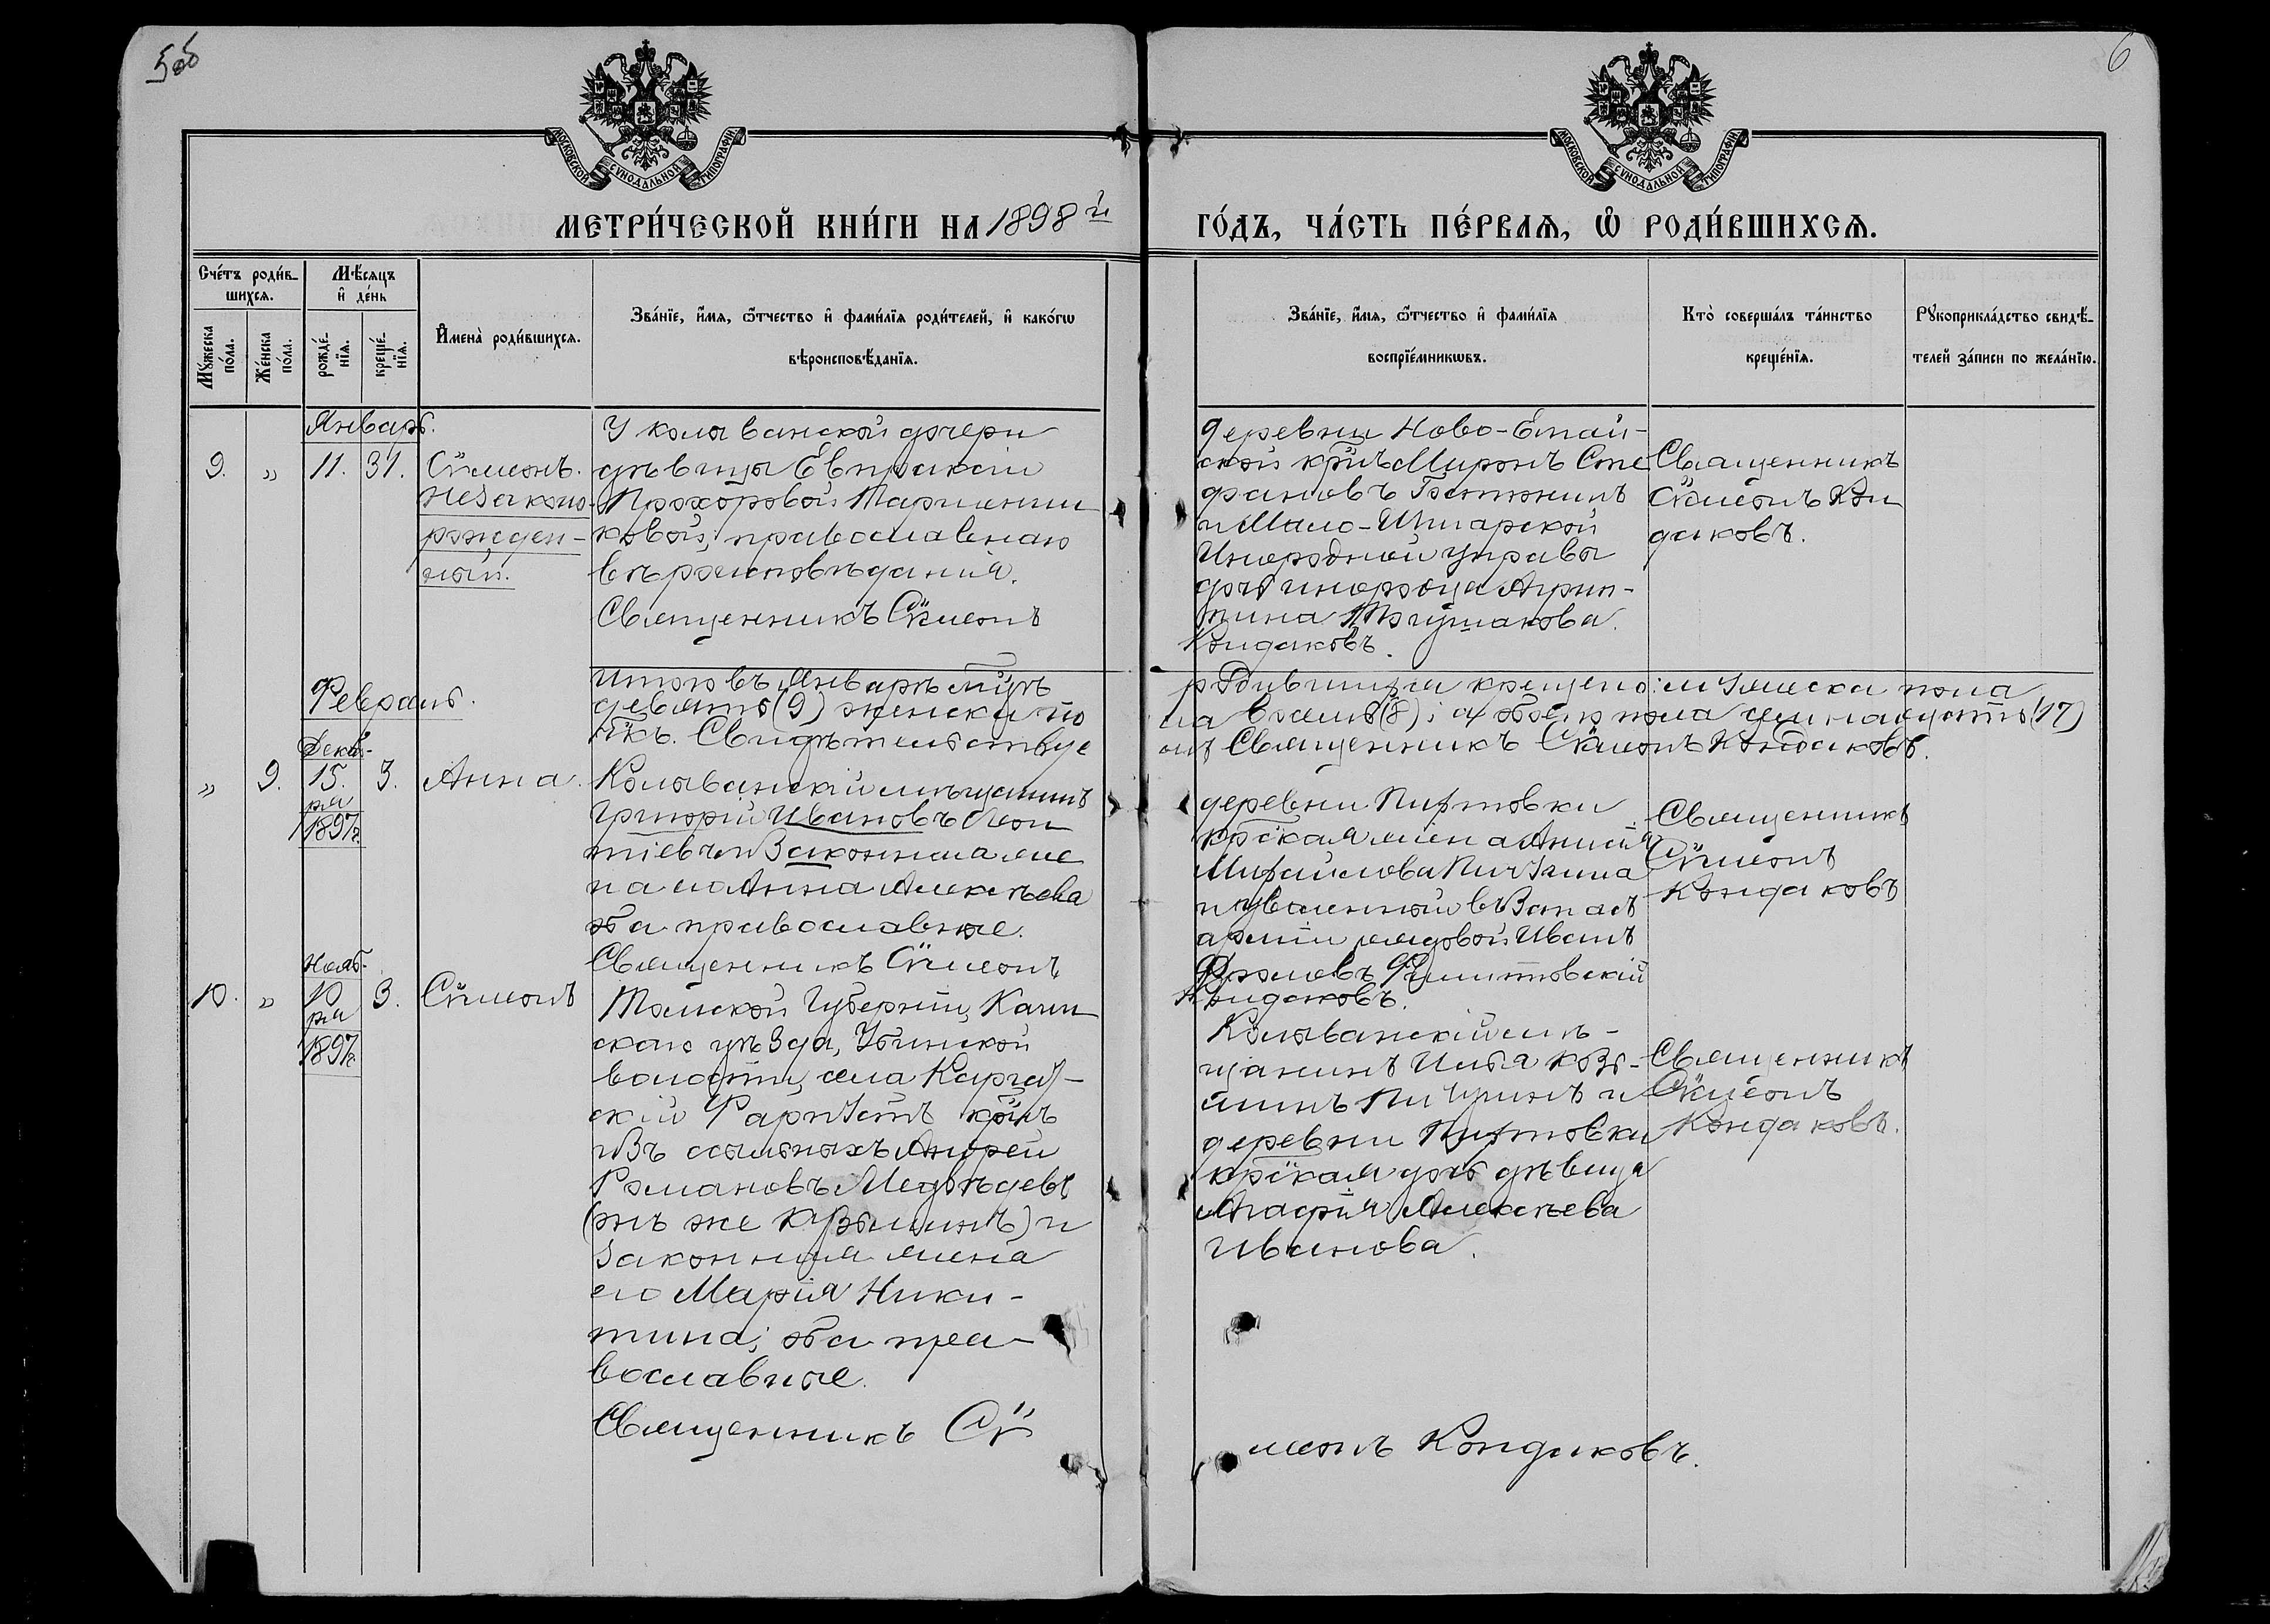 5об
6
МОСКОВСКОЙ СѴНОДАЛЬНОЙ ТИПОГРАФІИ
МОСКОВСКОЙ СѴНОДАЛЬНОЙ ТИПОГРАФІИ
МЕТРИ́ЧЕСКОЙ КНИ́ГИ НА 1898й
ГО́ДЪ, ЧА́СТЬ ПЕ́РВАЯ, Ѡ РОДИ́ВШИХСЯ.
Сче́тъ роди́в-
шихся.
Мѣ́сяцъ
и де́нь
Му́жеска
по́ла.
Же́нска
по́ла.
рожде́-
нїя.
креще́-
нїя.
И҆мена̀ роди́вшихся.
Зва́нїе, и҆́мя, ѻ҆́тчество и҆ фами́лїя роди́телей, и҆ како́гѡ
вѣроисповѣ́данїя.
Зва́нїе, и҆́мя, ѻ҆́тчество и҆ фами́лїя
воспрїе́мникѡвъ.
Кто̀ соверша́лъ та́инство
креще́нїя.
Рꙋкоприкла́дство свидѣ́-
телей за́писи по жела́нїю.
Январь.
9. " 11. 31. Сѵмеонъ.
незаконо-
рожден-
ный.
У колыванской дочери
дѣвицы Евпраксіи
Прохоровой
ковой, православнаго
вѣроисповѣданія.
Священникъ Сѵмеонъ
деревни Ново-
ской кр҃нъ Миронъ Сте
фановъ
и Мало-
Инородной управы
дочь инородца Агрип-
пина
Кондаковъ.
Священникъ
Сѵмеонъ Кон
даковъ.
Февраль.
Итого въ Январѣ мц҃ѣ
родившихся крещено: мужеска пола
девять (9) женска по
ла восемь (8); а обоего пола семнадцать (17)
чкъ. Свидѣтельствуе
омъ Священникъ Сѵмеонъ Кондаковъ.
" 9. Декаб-
15.
ря
1897г.
3. Анна.
Колыванскій мѣщанинъ
Григорій Ивановъ Леон
тіевъ и Законная же
на его Анна Алексѣева
оба православные.
Священникъ Сѵмеонъ
деревни Пихтовки
кр҃ская жена
Михайлова Пичугина
и уволенный въ Запасъ
арміи рядовой Иванъ
Кондаковъ.
Священникъ
Сѵмеонъ
Кондаковъ
10. " Нояб-
10
ря
1897г.
3. Сѵмеонъ
Томской Губерніи, Каин
скаго уѣзда, Убинской
волости, села Каргат-
скій Фарпостъ кр҃нъ
изъ ссыльныхъ Андрей
Романовъ Медвѣдевъ
(онъ же Кузьминъ) и
Законная жена
его Марія Ники-
тина; оба пра-
вославные.
Священникъ Сѵ
меонъ Кондаковъ.
Колыванскій мѣ-
щанинъ Илья Козь-
минъ Пичугинъ и
деревни Пихтовки
кр҃ская дочь дѣвица
Агафія Алексѣева
Иванова.
Священникъ
Сѵмеонъ
Кондаковъ.